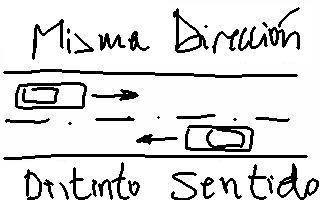 Misma Dirección
Distinto Sentido